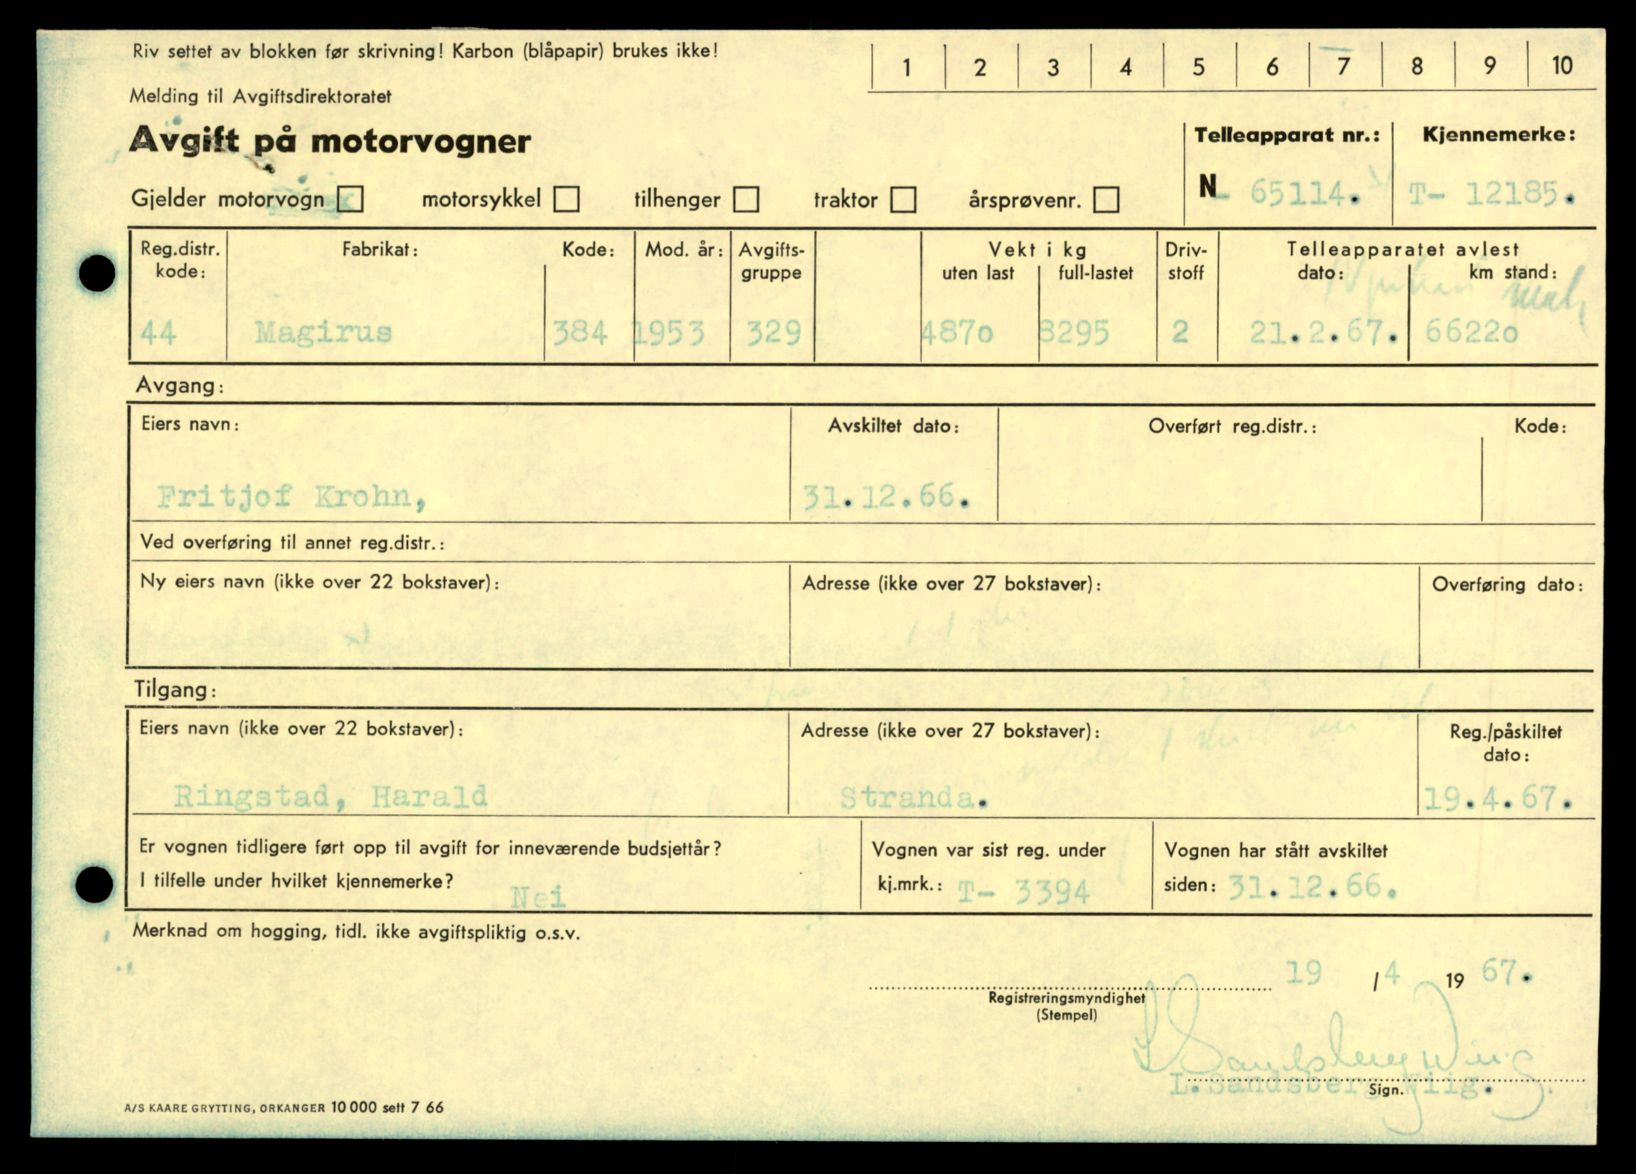 Riv settet av blokken før skrivning! Karbon (blåpapir) brukes ikke!
1 2 3 4 5 6 7 8 9 10
Melding til Avgiftsdirektoratet
Avgift på motorvogner
Telleapparat nr.: Kjennemerke:
Gjelder motorvogn motorsykkel tilhenger traktor årsprøvenr.
N 65114. T- 12185.
Reg.distr. kode: Fabrikat: Kode: Mod. år: Avgifts-gruppe Vekt i kg uten last full-lastet Driv-stoff Telleapparatet avlest dato: km stand:
44 Magirus 384 1953 329 4870 8295 2 21.2.67. 66220
Avgang:
Eiers navn: Avskiltet dato: Overført reg.distr.: Kode:
Fritjof Krohn, 31.12.66.
Ved overføring til annet reg.distr.:
Ny eiers navn (ikke over 22 bokstaver): Adresse (ikke over 27 bokstaver): Overføring dato:
Tilgang:
Eiers navn (ikke over 22 bokstaver): Adresse (ikke over 27 bokstaver): Reg./påskiltet
dato:
Ringstad, Harald Stranda. 19.4.67.
Er vognen tidligere ført opp til avgift for inneværende budsjettår? Vognen var sist reg. under Vognen har stått avskiltet
I tilfelle under hvilket kjennemerke? Nei kj.mrk.: T- 3394 siden: 31.12.66.
Merknad om hogging, tidl. ikke avgiftspliktig o.s.v.
19 / 4 19 67.
Registreringsmyndighet
(Stempel)
L. Sandsberg Wiig.
Sign.
A/S KAARE GRYTTING, ORKANGER 10 000 sett 7 66